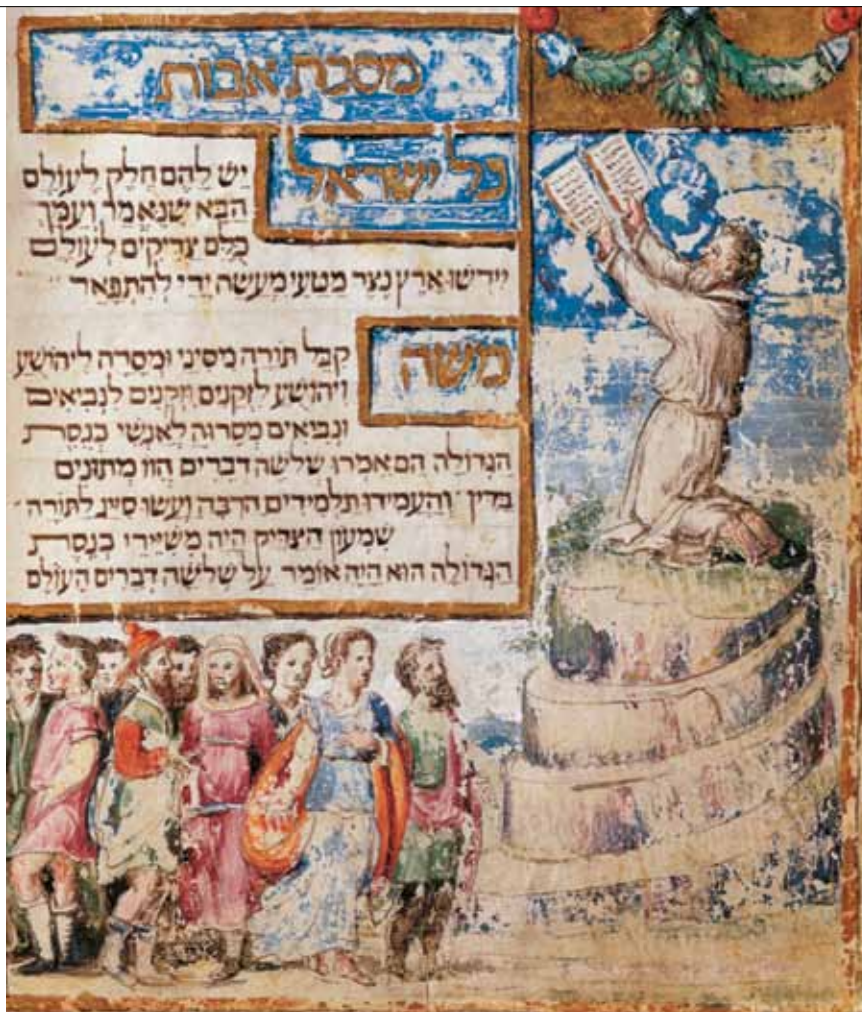 מסכת אבות
כל ישראל
יש להם חלק לעולם
הבא שנאמר ועמך
כלם צדיקים לעולם
יירשו ארץ נצר מטעי מעשה ידי להתפאר
משה
קבל תורה מסיני ומסרה ליהושע
ויהושע לזקנים וזקנים לנביאים
ונביאים מסרוה לאנשי כנסת
הגדולה הם אמרו שלשה דברים הוו מתונים
בדין והעמידו תלמידים הרבה ועשו סייג לתורה
שמעון הצדיק היה משיירי כנסת
הגדולה הוא היה אומר על שלשה דברים העולם